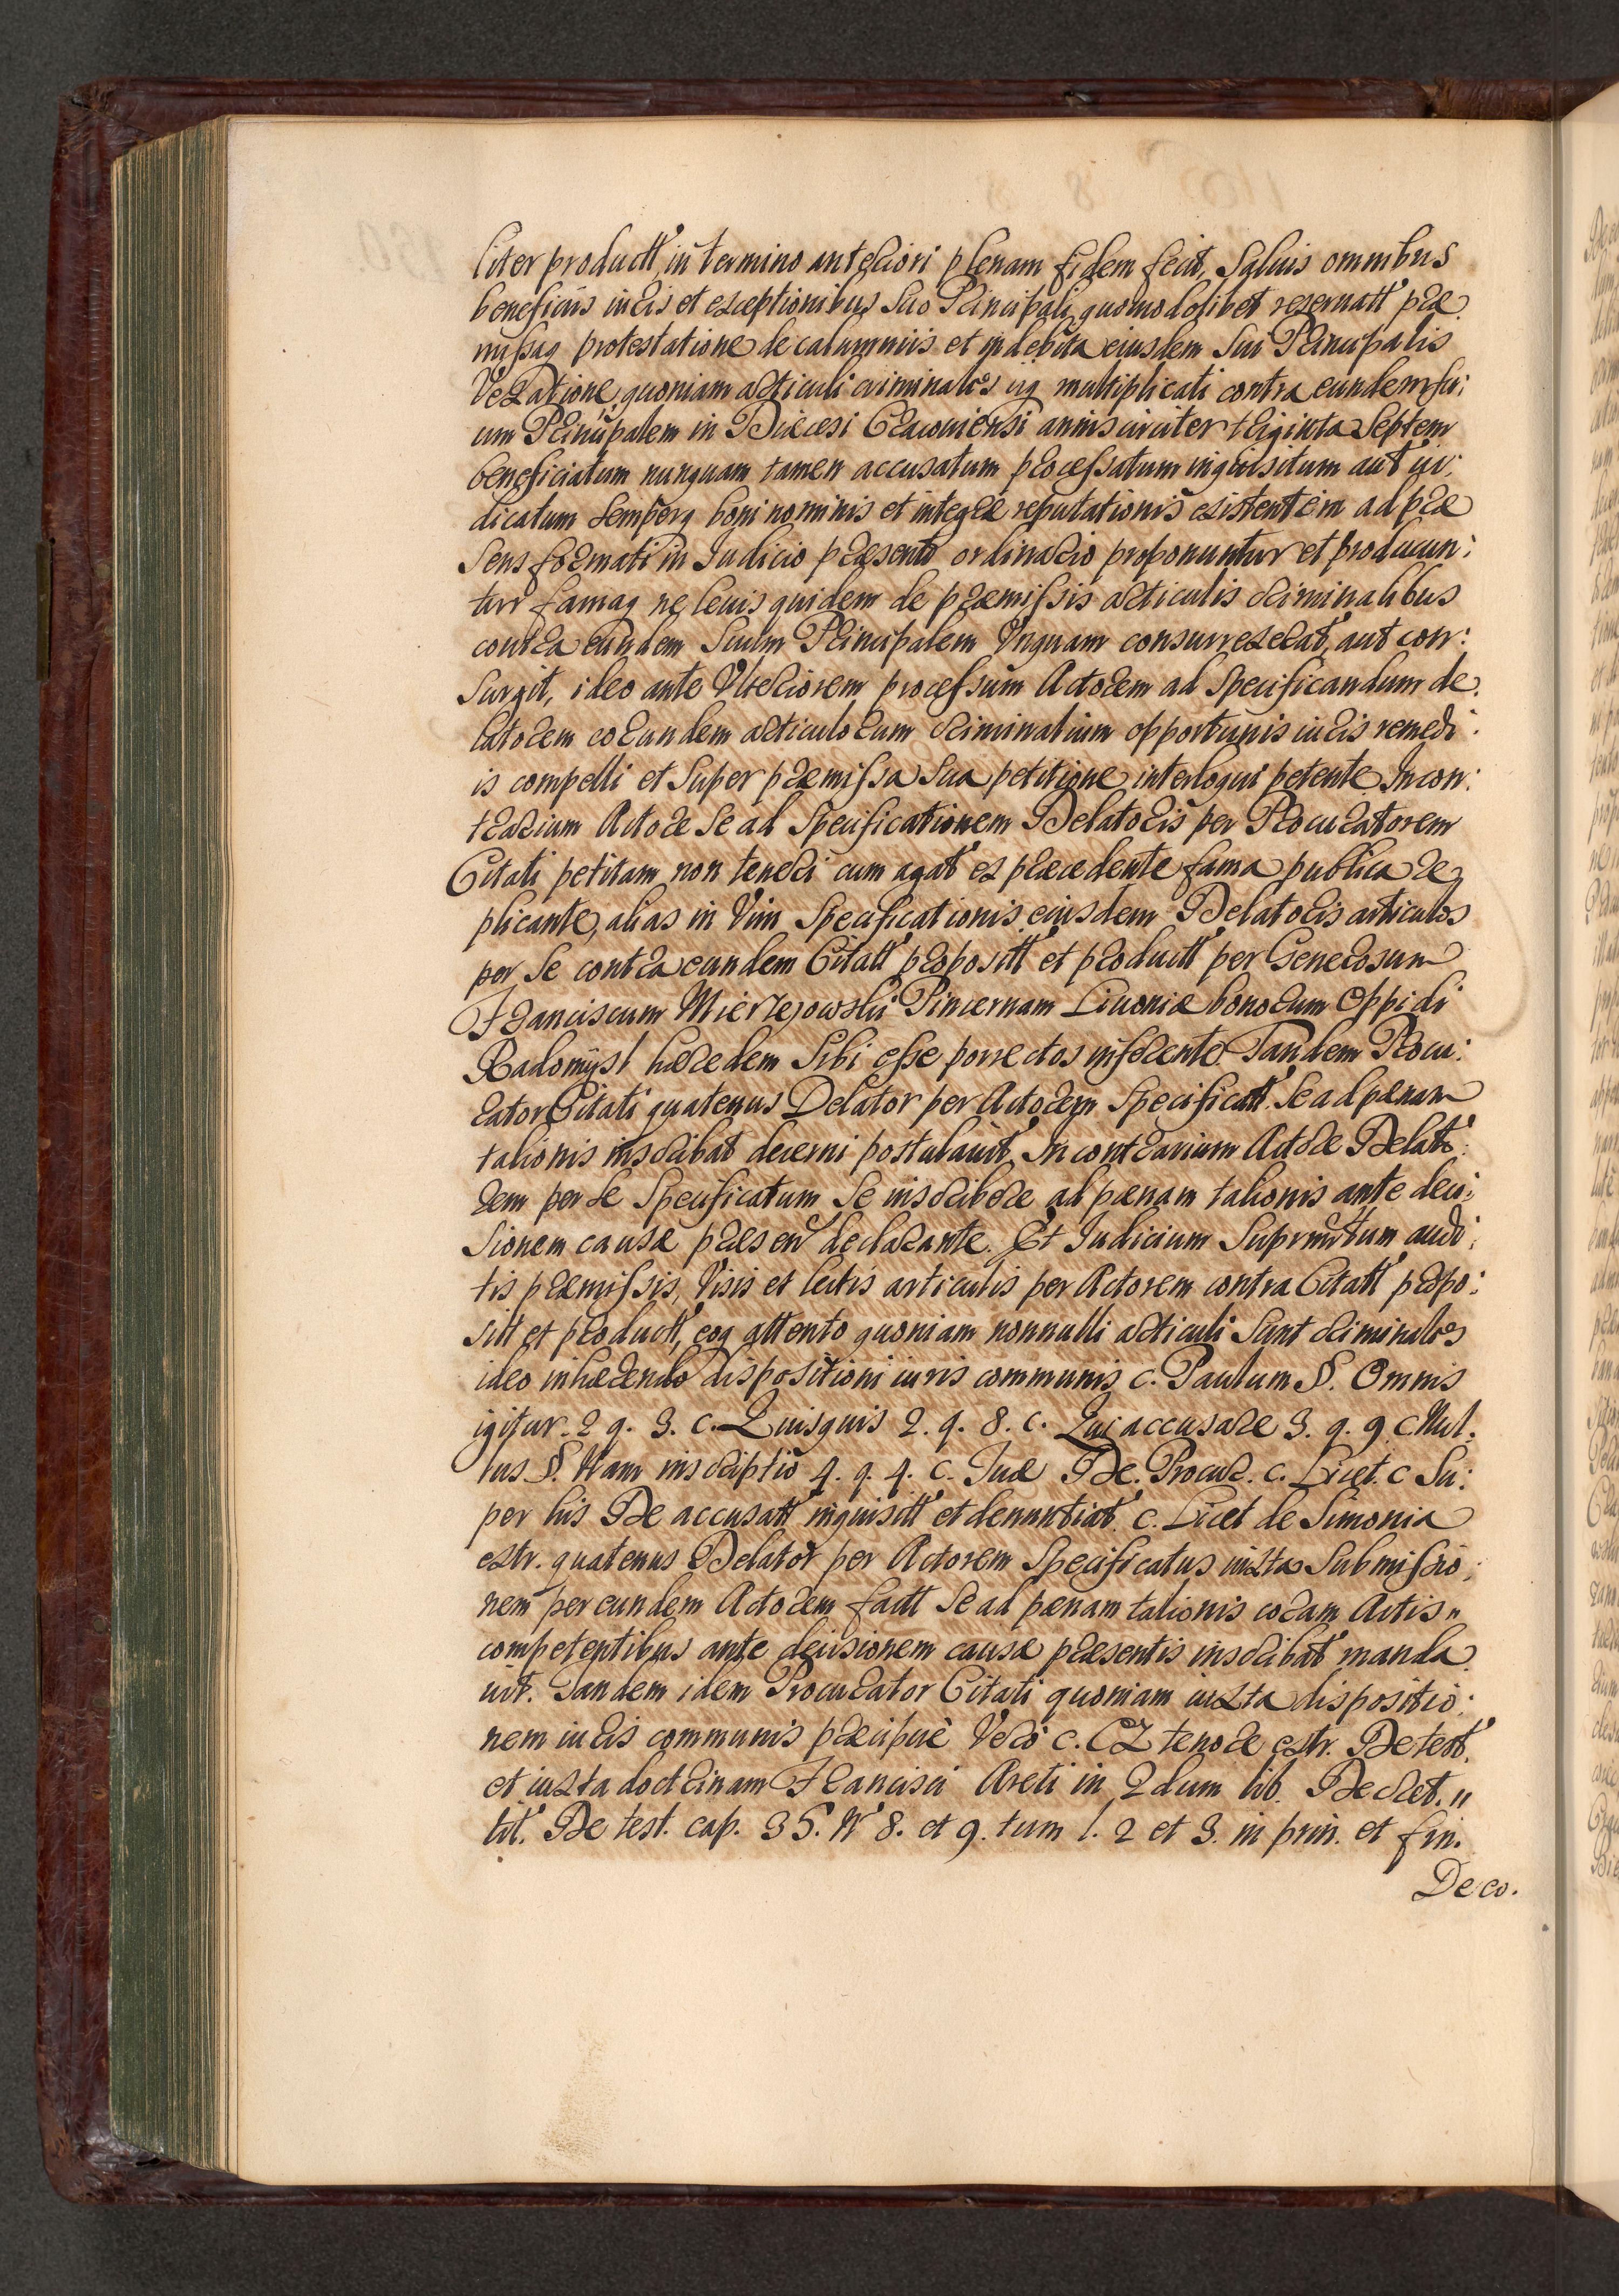 liter productt' in termino anteriori plenam fidem fecit, Saluis omnibus
beneficiis iuris et exceptionibus Suo Principali quomodolibet reseruatt' præ
missaq protestatione de calumniis et indebita eiusdem Sui Principalis
Vexatione, quoniam articuli criminales iiq multiplicati contra eundem su:
um Principalem in Diæcesi Cracouiensi annis circiter triginta Septem
beneficiatum nunquam tamen accusatum processatum inquisitum aut iu:
dicatum Semperq boni nominis et integræ reputationis existentem ad præ
Sens formati in Iudicio præsenti ordinario proponuntur et producun:
tur famaq ne leuis quidem de præmissis articulis criminalibus
contra eundem Suum Principalem Unquam consurrexerat, aut con:
Surgit, ideo ante Ulteriorem processum Actorem ad Specificandum de:
latorem eorundem articulorum criminalium opportunis iuris remedi:
is compelli et Super præmissa Sua petitione interloqui petente. In con:
trarium Actore Se ad Specificationem Delatoris per Procuratorem
Citati petitam non teneri cum agat ex præcedente fama publica re
plicante, alias in Vim Specificationis eiusdem Delatoris articulos
per Se contra eundem Citatt' propositt' et productt' per Generosum
Franciscum Mierzejowski Pincernam Liuoniæ bonorum Oppidi
Radomysl hæredem Sibi esse porrectos inferente. Tandem Procu:
rator Citati quatenus Delator per Actorem Specificatt' Se ad pænam
talionis inscribat decerni postulauit. In contrarium Actore Delato:
rem per Se Specificatum Se inscribere ad pænam talionis ante deci:
Sionem causæ præsen' declarante. Et Iudicium Suprascriptum audi:
tis præmissis, Visis et lectis articulis per Actorem contra Citatt' propo:
sitt et productt', eoq attento quoniam nonnulli articuli Sunt criminales
ideo inhærendo dispositioni iuris communis c. Paulum §. Omnis
igitur. 2 q. 3. c. Quisquis 2. q. 8. c. Qui accusare 3. q. 9. c Nul:
lus §. Nam inscriptio 4. q. 4. c. Tuæ De. Procur. c. Licet. c Su:
per his De accusatt' inquisitt' et denuntiat'. c. Licet de Simonia
extr. quatenus Delator per Actorem Specificatus iuxta Submissio:
nem per eundem Actorem factt Se ad pænam talionis coram Actis "
competentibus ante decisionem causæ præsentis inscribat manda
uit. Tandem idem Procurator Citati quoniam iuxta dispositio:
nem iuris communis præcipuè Vero c. Ex tenore extr. De test'.
et iuxta doctrinam Francisci Areti in 2dum lib. Decret. "
tit. De test. cap. 35. N' 8. et 9. tum l. 2 et 3. in prin. et fin.
De eo.